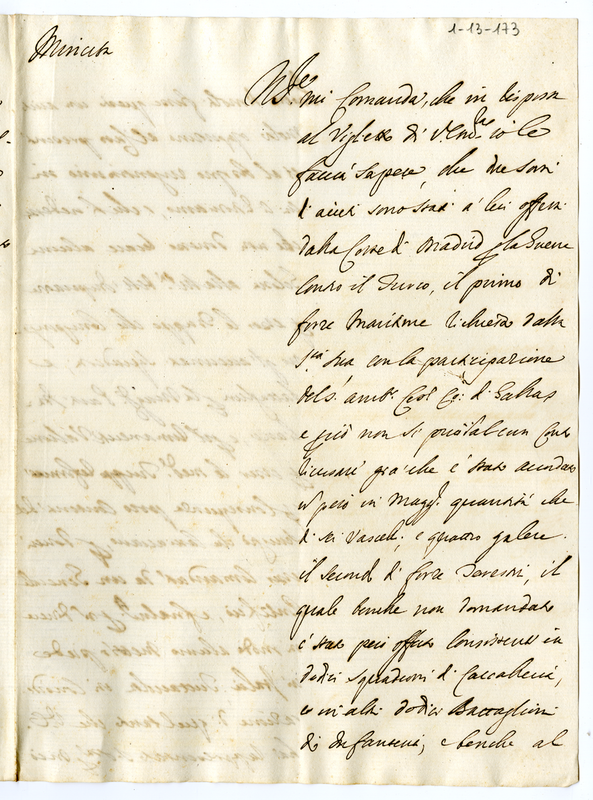 1-13-173
Minuta
mi Comanda, che in risposta
al Viglietto di V. Em.za io le
faccia sapere, che due sorti
d'aiuti sono stati à lui offerti
dalla Corte di Madrid p la Guerra
contro il Turco, il primo di
forze Maritime richiesto dalla
S.tà Sua con la participazione
del S.r Amb.r Ces.o Co: di Gallas
e più non si può
ricusare già che è stato accordato
nè però in Magg.r quantità che
di sei Vascelli, e quattro galere.
il secondo di forze Terrestri, il
quale benche non domandato
è stato però offerto consistente in
dodici squadroni di Cavalleria,
et in altri dodici Battaglioni
di Infanteria, e benche al